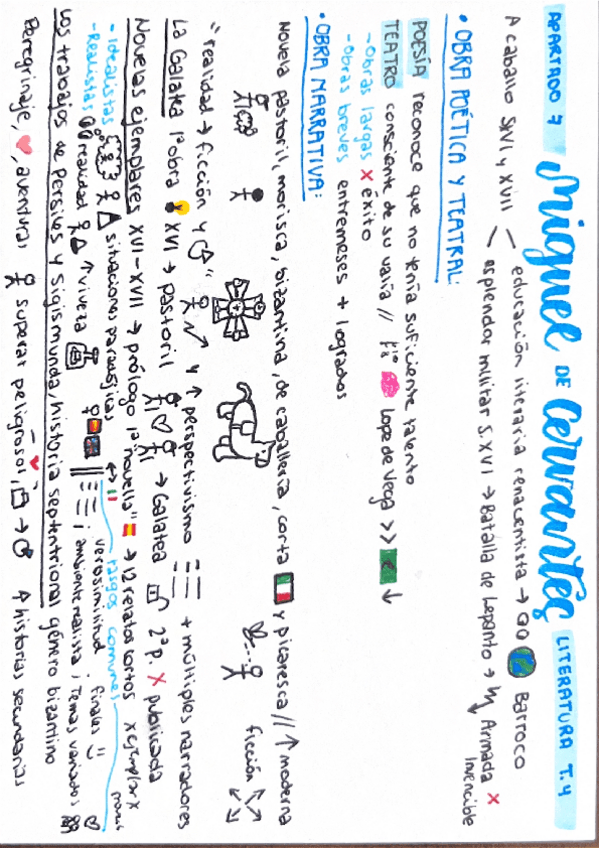 APARTADO 7
Miguel DE Cervantes
LITERATURA T.4
A caballo SXVI y XVII < educación literaria renacentista → Barroco
esplendor militar S.XVI → Batalla de Lepanto → Armada X Invencible
• OBRA POÉTICA Y TEATRAL:
POESÍA reconoce que no tenía suficiente talento
TEATRO consciente de su valía // Lope de Vega >>
- Obras largas X éxito
- Obras breves entremeses + logrados
• OBRA NARRATIVA:
Novela pastoril, morisca, bizantina, de caballería, corta y picaresca // ↑ moderna
ficción
"realidad → ficción y" y ↑ perspectivismo + múltiples narradores
La Galatea 1ª obra XVI → pastoril → Galatea 2ª p. X publicada
Novelas ejemplares XVI-XVII → prólogo 1ª "novella" → 12 relatos cortos x ejemplar x
- Idealistas situaciones paradójicas rasgos comunes
- Realistas realidad ↑ viveza verosimilitud finales
ambiente realista ; Temas variados
Los trabajos de Persiles y Sigismunda, historia septentrional género bizantino
Peregrinaje, ♥, aventuras superar peligros, historias secundarias